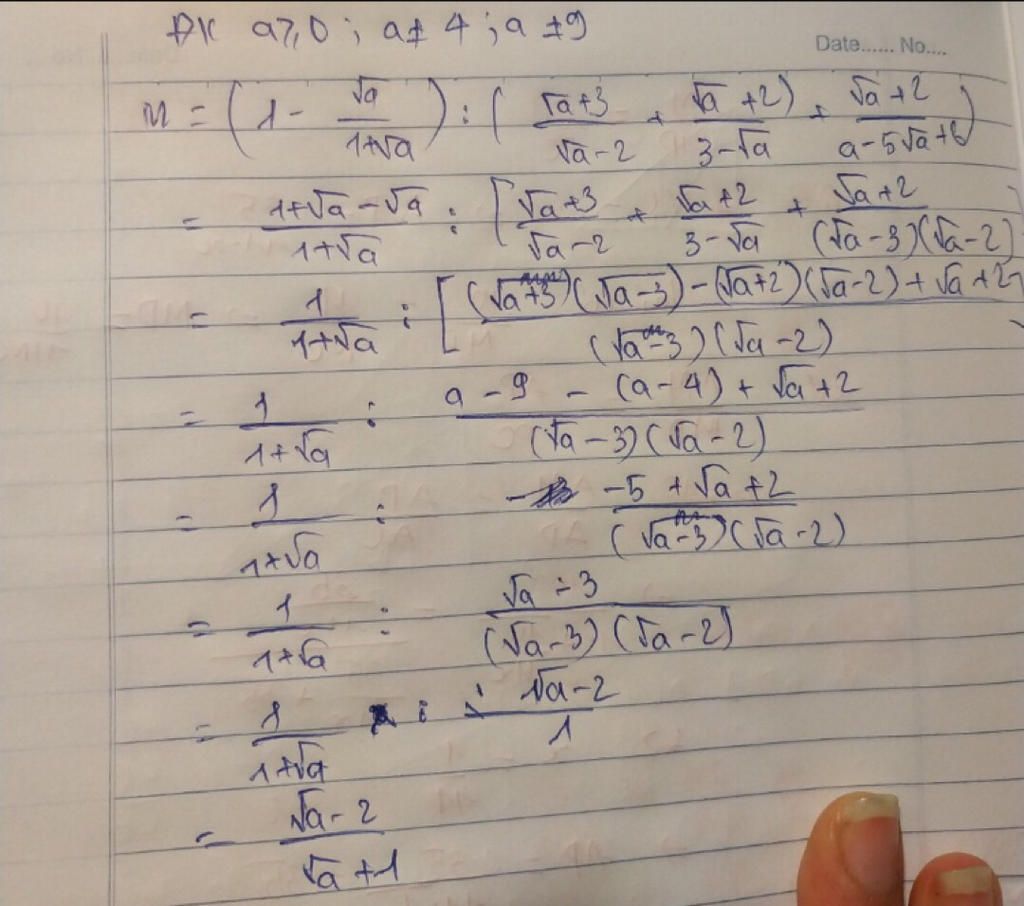 ĐK a⩾0 ; a≠4 ; a≠9
Date...... No....
M = (1 - √a/(1+√a)) : ((√a+3)/(√a-2) + (√a+2)/(3-√a)) + (√a+2)/(a-5√a+6))
= (1+√a-√a)/(1+√a) : [(√a+3)/(√a-2) + (√a+2)/(3-√a) + (√a+2)/((√a-3)(√a-2))]
= 1/(1+√a) : [((√a+3)(√a-3)-(√a+2)(√a-2)+√a+2)/((√a-3)(√a-2))]
= 1/(1+√a) : (a-9-(a-4)+√a+2)/((√a-3)(√a-2))
= 1/(1+√a) : (-5+√a+2)/((√a-3)(√a-2))
= 1/(1+√a) : (√a-3)/((√a-3)(√a-2))
= 1/(1+√a) : (√a-2)/1
= (√a-2)/(√a+1)